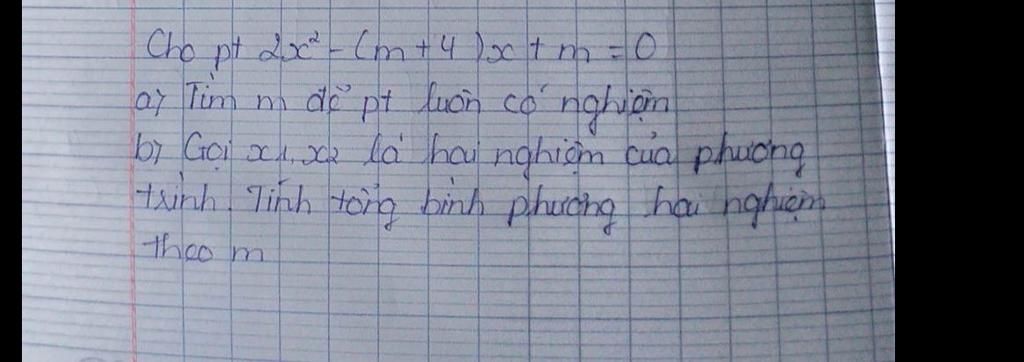 Cho pt 2x² - (m + 4)x + m = 0
a) Tìm m để pt luôn có nghiệm
b) Gọi x1, x2 là hai nghiệm của phương
trình. Tính tổng bình phương hai nghiệm
theo m